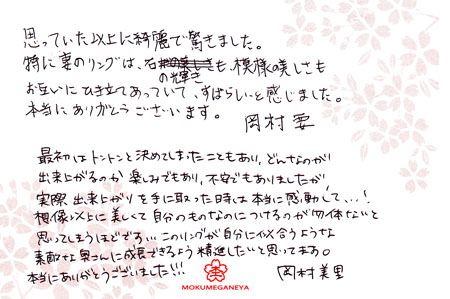 思っていた以上に綺麗で驚きました。
特に妻のリングは、石の輝きも、模様の美しさも
お互いにひき立てあっていて、すばらしいと感じました。
本当にありがとうございます。
岡村 要
最初はトントンと決めてしまったこともあり、どんなのが
出来上がるのか楽しみでもあり、不安でもありましたが、
実際出来上がりを手に取った時は本当に感動して...!
想像以上に美しくて自分のものなのにつけるのが勿体ないと
思ってしまうほどです... このリングが自分に似合うような
素敵な奥さんに成長できるよう精進したいと思ってます。
本当にありがとうございました!!!
岡村美里
MOKUMEGANEYA